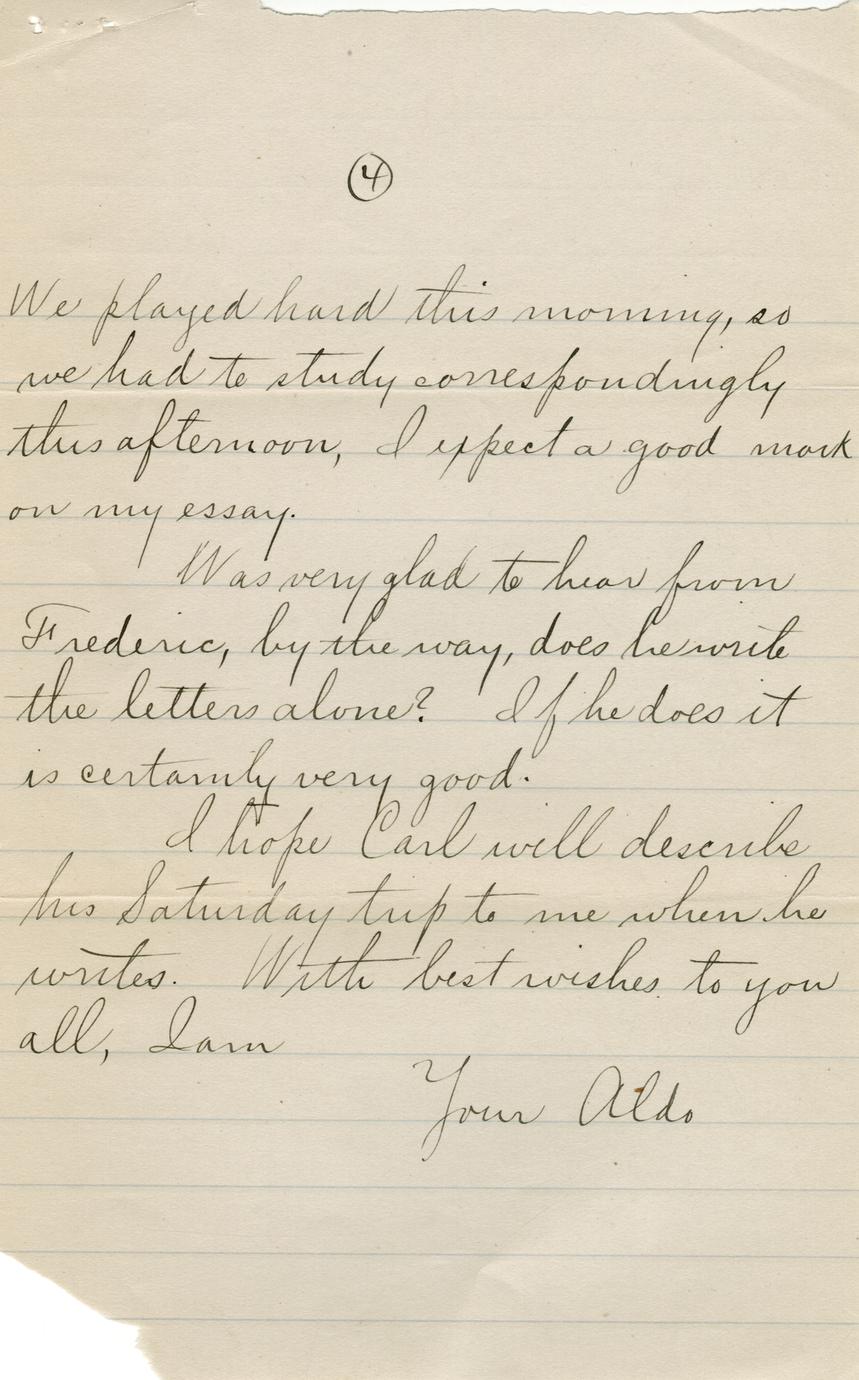 4
We played hard this morning, so
we had to study correspondingly
this afternoon, I expect a good mark
on my essay.
Was very glad to hear from
Frederic, by the way, does he write
the letters alone? If he does it
is certainly very good.
I hope Carl will describe
his Saturday trip to me when he
writes. With best wishes to you
all, I am
Your Aldo